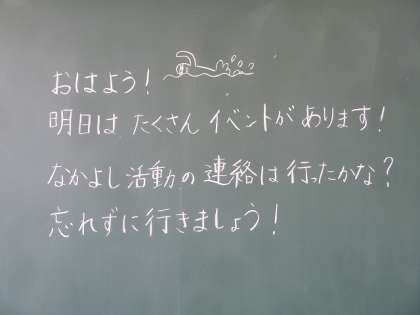 おはよう!
明日は たくさん イベントが あります!
なかよし 活動の 連絡は 行ったかな?
忘れずに 行きましょう!